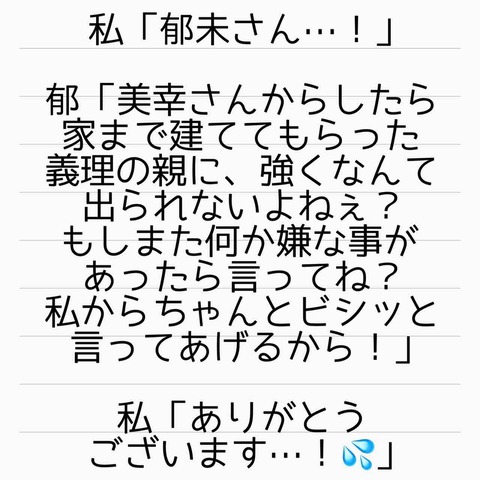 私「郁未さん…！」
郁「美幸さんからしたら
家まで建ててもらった
義理の親に、強くなんて
出られないよねぇ？
もしまた何か嫌な事が
あったら言ってね？
私からちゃんとビシッと
言ってあげるから！」
私「ありがとう
ございます…！💦」